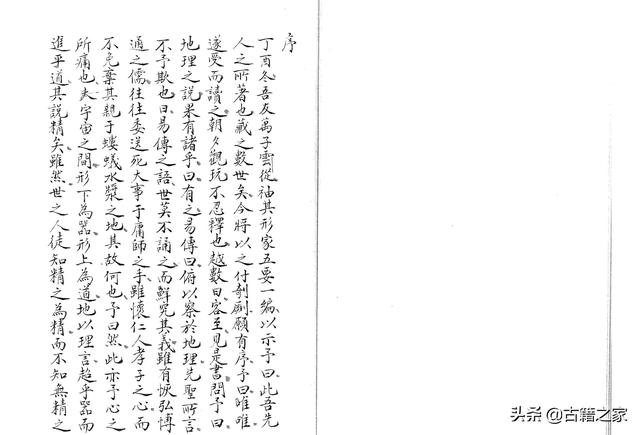 序
丁酉冬吾友萬子雲從袖其形家五要一編以示予曰此吾先
人之所著也藏之數世矣今將以之付剞劂願有序予曰唯唯
遂受而讀之朝夕觀玩不忍釋也越數日客至見是書問予曰
地理之說果有諸乎曰有之易傳曰俯以察於地理先聖所言
不予欺也曰易傳之語世莫不誦之而鮮究其義雖有恢弘博
通之儒往往委送死大事于庸師之手雖懷仁人孝子之心而
不免棄其親于螻蟻水漿之地其故何也予曰然此亦予心之
所痛也夫宇宙之間形下為器形上為道地以理言超乎器而
進乎道其說精矣雖然世之人徒知精之為精而不知無精之
头条@古籍之家